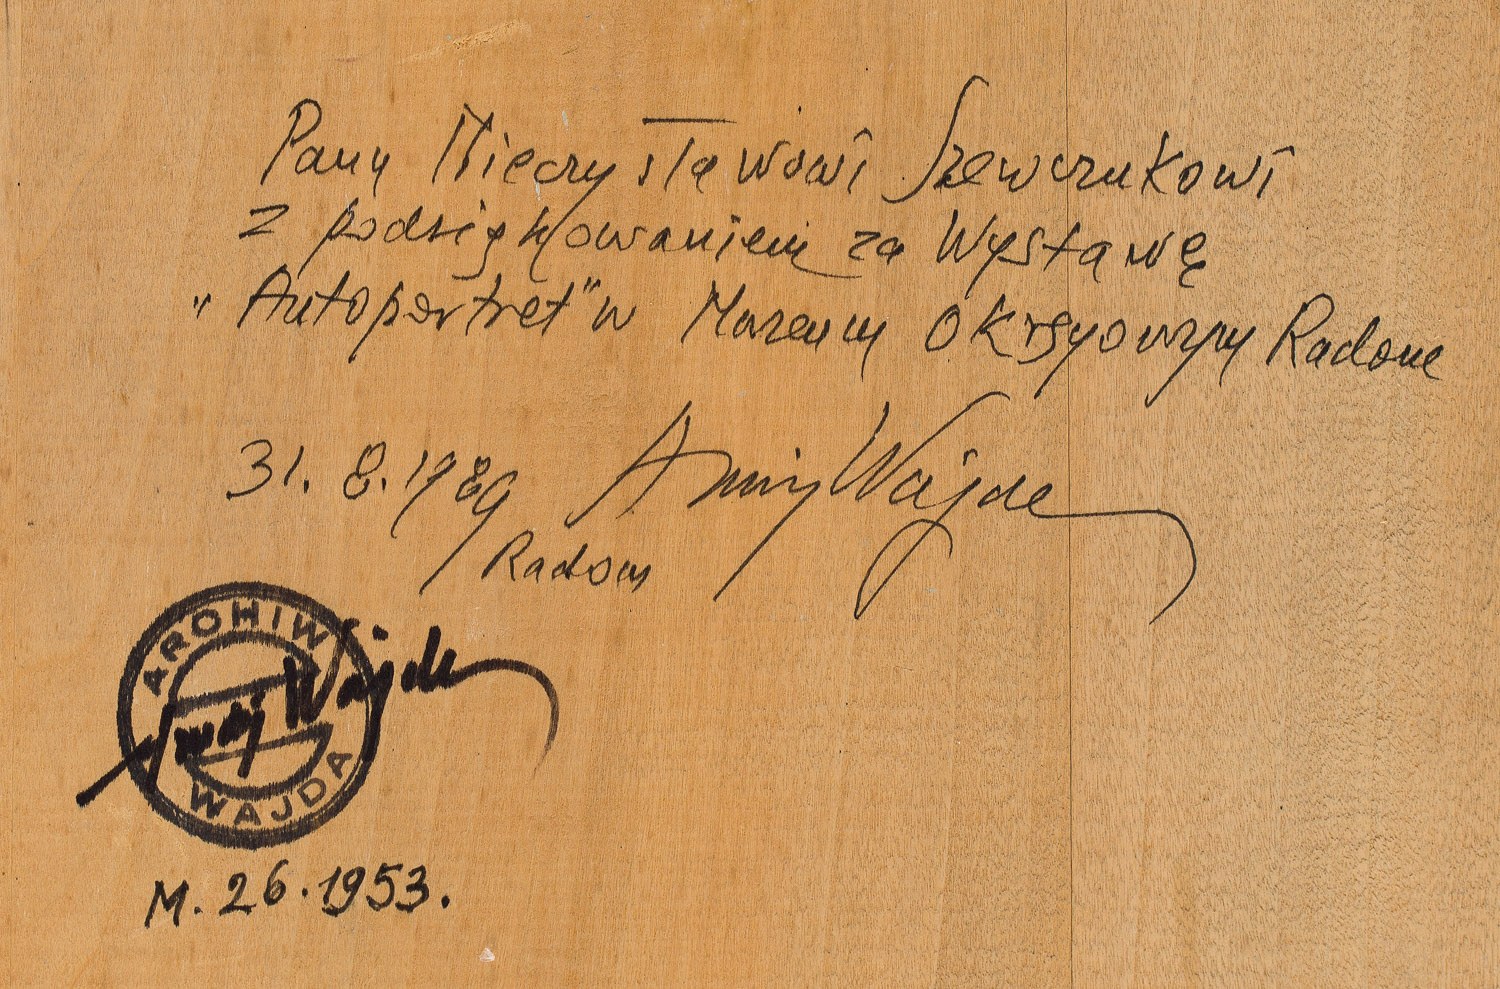 Panu Mieczysławowi Szewczukowi
z podziękowaniem za Wystawę
"Autoportret" w Muzeum Okręgowym Radomia
31. 8. 1989 Andrzej Wajda
Radom
ARCHIWUM
Andrzej Wajda
WAJDA
M. 26. 1953.